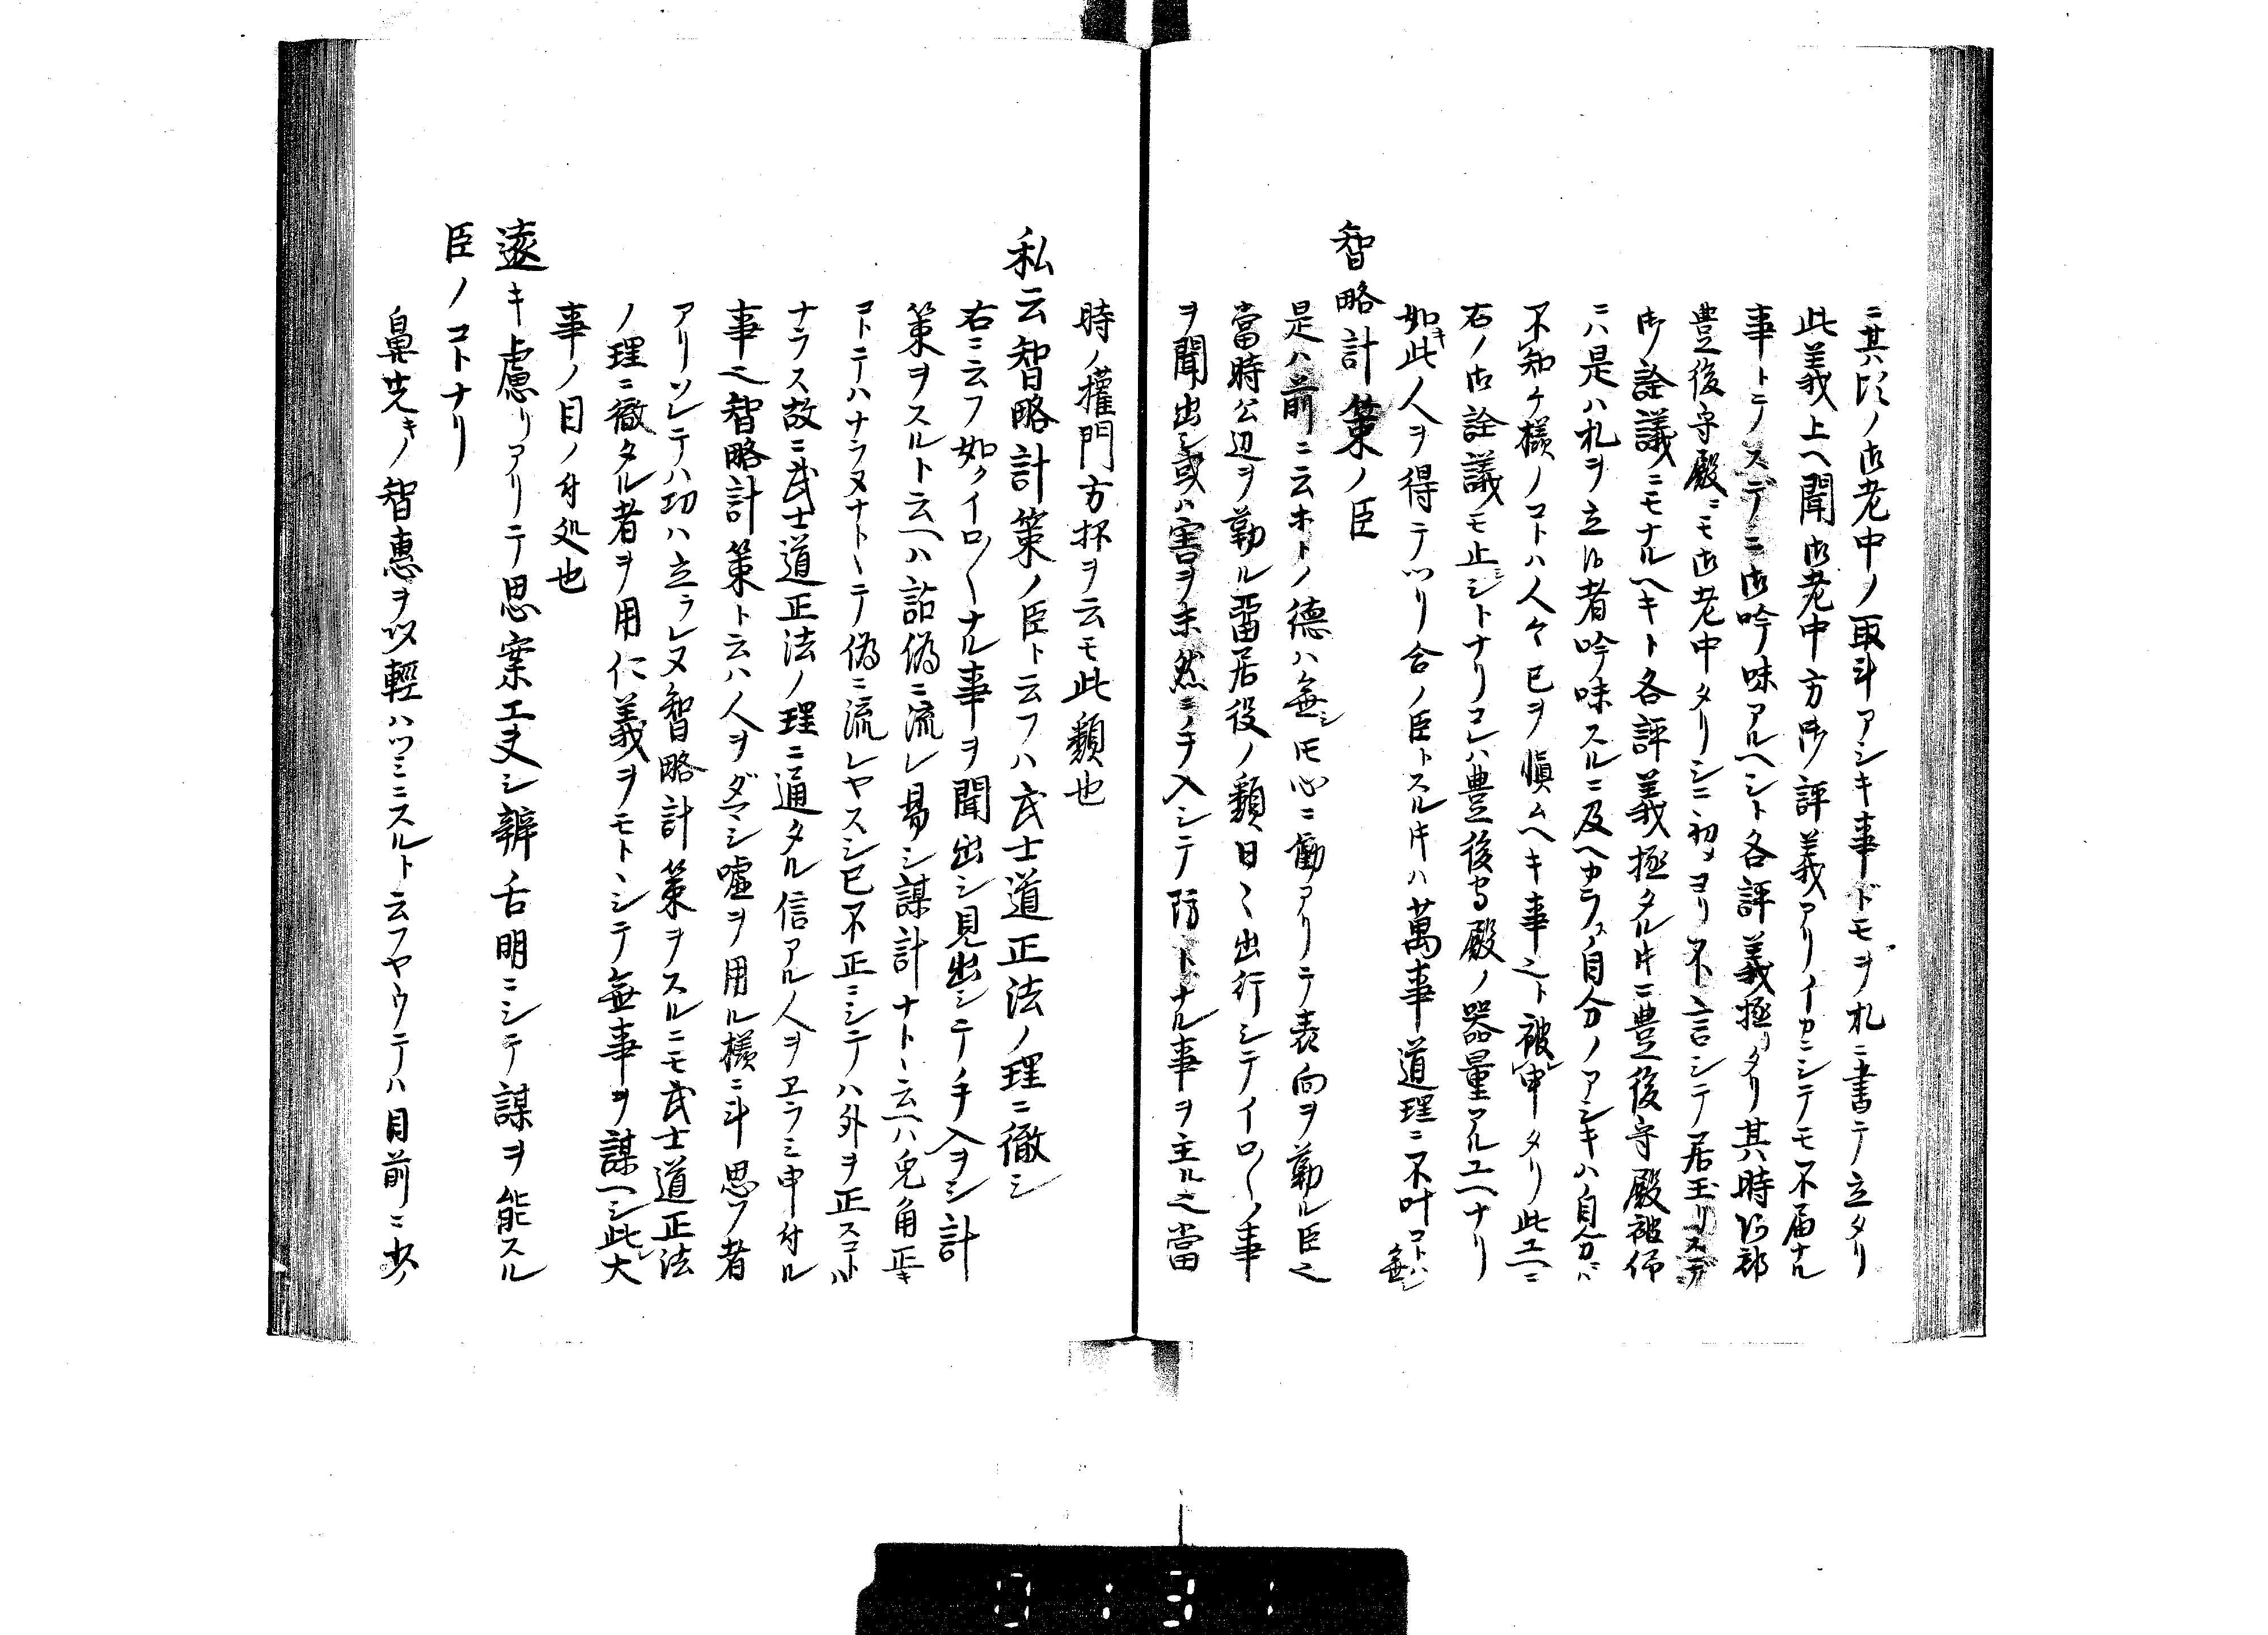 ニ其以後ノ御老中ノ取斗アシキ事ドモヲ札ニ書テ立タリ
此義上ヘ聞御老中方御評義アリイカニシテモ不届ナル
事トテノスデニ御吟味アルヘシト各評義極リタリ其時阿部
豊後守殿ニモ御老中タリシニ初メヨリ不言シテ居玉リスデニ
御詮議ニモナルヘキト各評義極タル片ニ豊後守殿被仰
ニハ是ハ札ヲ立候者吟味スルニ及ヘカラス自分ノアシキハ自分ニハ
不知ケ様ノコトハ人々己ヲ慎ムヘキ事之ト被申タリ此ユヘニ
右ノ御詮議モ止ミシトナリコレハ豊後守殿ノ器量アルユヘナリ
如此キ人ヲ得テツリ合ノ臣トスル片ハ萬事道理ニ不叶コトハ無シ
智略計策ノ臣
是ハ前ニ云ホトノ德ハ無シ𪜈心ニ働アリテ表向ヲ勤ル臣之
當時公辺ヲ勤ル畱居役ノ類日々出行シテイロ〱ノ事
ヲ聞出シ或ハ害ヲ未然ニノ手入シテ防トナル事ヲ主ル之當
時ノ權門方抔ヲ云モ此類也
私云智略計策ノ臣ト云フハ武士道正法ノ理ニ徹シ
右ニ云フ如クイロ〱ナル事ヲ聞出シ見出シテノ手入ヲシ計
策ヲスルト云ヘハ詔偽ニ流レ易シ謀計ナトヽ云ヘハ兎角正キ
コトニテハナラヌナトヽテ偽ニ流レヤスシ已不正ニシテハ外ヲ正スコトハ
ナラス故ニ武士道正法ノ理ニ通タル信アル人ヲヱラミ申付ル
事之智略計策ト云ハ人ヲダマシ嘘ヲ用ル様ニ斗思フ者
アリソレテハ功ハ立ラレヌ智略計策ヲスルニモ武士道正法
ノ理ニ徹タル者ヲ用仁義ヲモトヽシテ無事ヲ謀ヘシ此レ大
事ノ目ノ付処也
遠キ慮リアリテ思案工夫シ辨舌明ニシテ謀ヲ能スル
臣ノコトナリ
鼻先キノ智惠ヲ以輕ハツミニスルト云フヤウテハ目前ニ少ノ